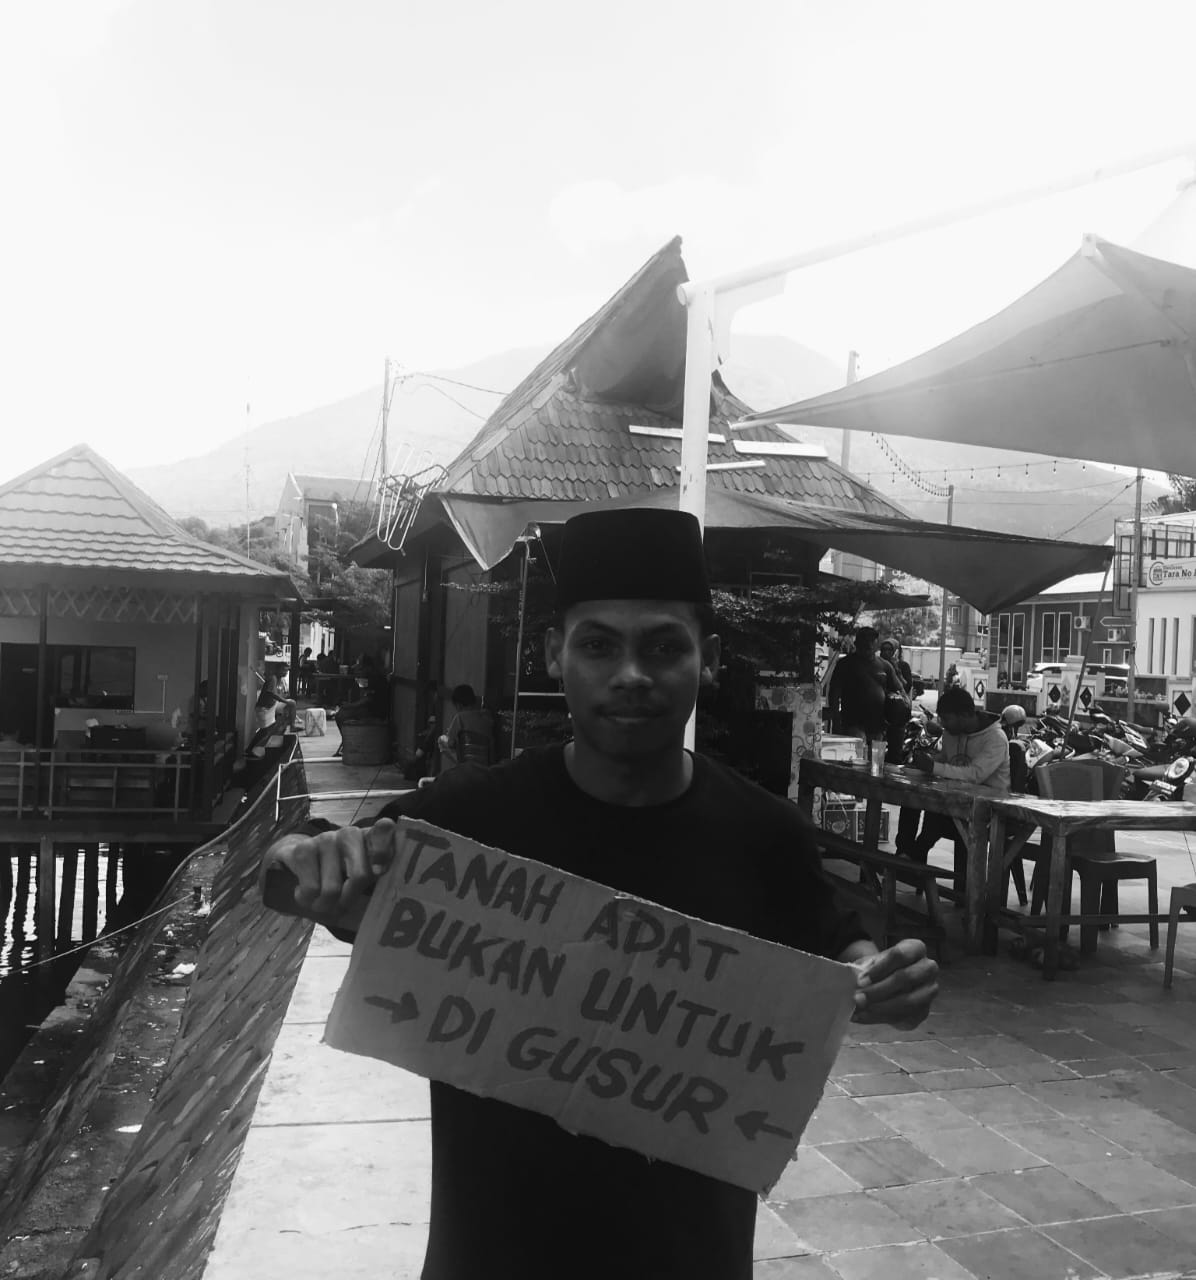 TANAH ADAT
BUKAN UNTUK
→ DI GUSUR ←
Tara No